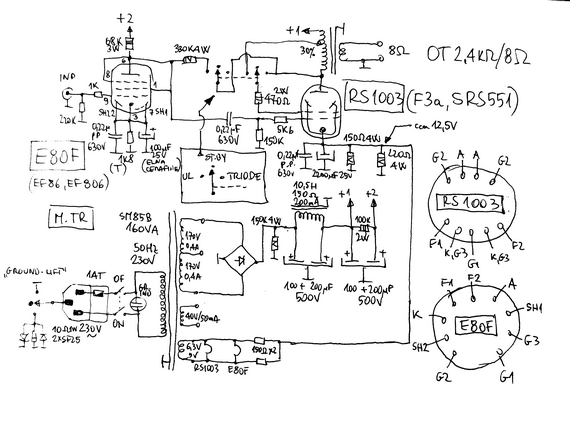 +2
68K
3W
330K4W
+1
30%
8Ω
OT 2,4KΩ/8Ω
IND
1K
220K
8
6
9
1
3
7
SH2
SH1
0,22µF
P.P.
630V
1K8
(T)
100µF
25V
(ELNA
CERAFINE)
E80F
(EF86, EF806)
2W
470Ω
5K6
0,22µF
630V
150K
RS1003
(F3a, SRS551)
cca 12,5V
150Ω4W
220Ω
4W
0,22µF
P.P.
630V
2200µF25V
ST.BY
UL
TRIODE
M.TR
SM85B
160VA
50Hz
230V
170V
0,4A
170V
0,4A
40V/50mA
6,3V
RS1003
E80F
150Ω×2
150K4W
10,5H
150Ω
200mA
+1
+2
100K
2W
100+200µF
500V
100+200µF
500V
"GROUND-LIFT"
1AT
OF
ON
230V
~
2XSF25
G2
A
A
G2
RS1003
F1
K,G3
G1
K,G3
F2
F1
F2
A
SH1
K
E80F
G3
SH2
G2
G1